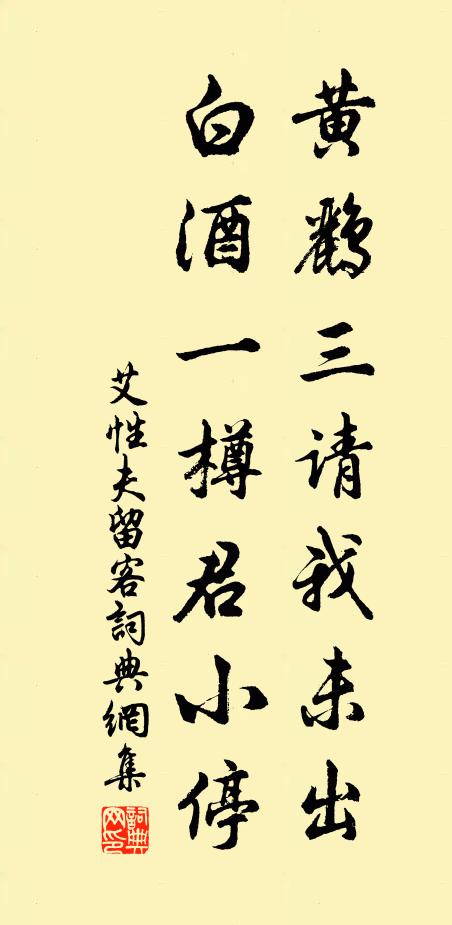 黄鸝三请我未出
白酒一樽君小停
艾性夫留客詞典網集
詞典網印